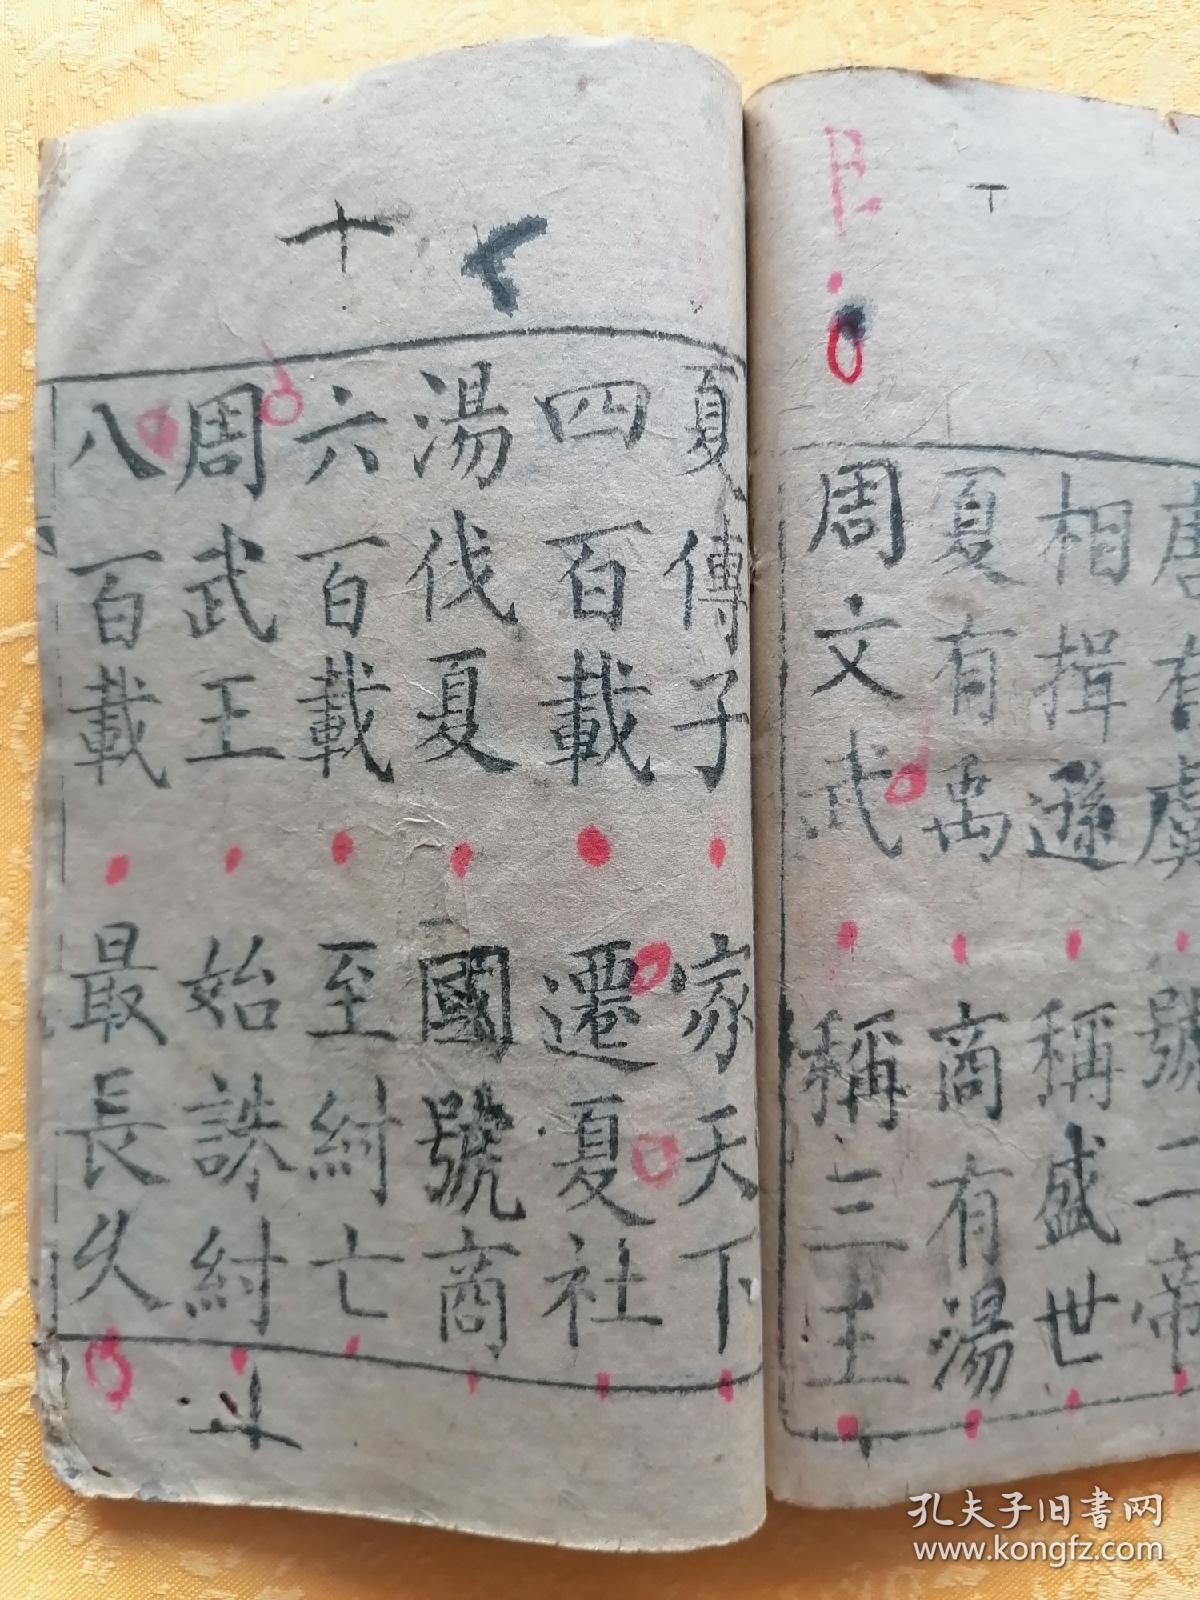 唐有虞 號二帝
相揖遜 稱盛世
夏有禹 商有湯
周文武 稱三王
夏傳子 家天下
四百載 遷夏社
湯伐夏 國號商
六百載 至紂亡
周武王 始誅紂
八百載 最長久
十
孔夫子旧书网
www.kongfz.com